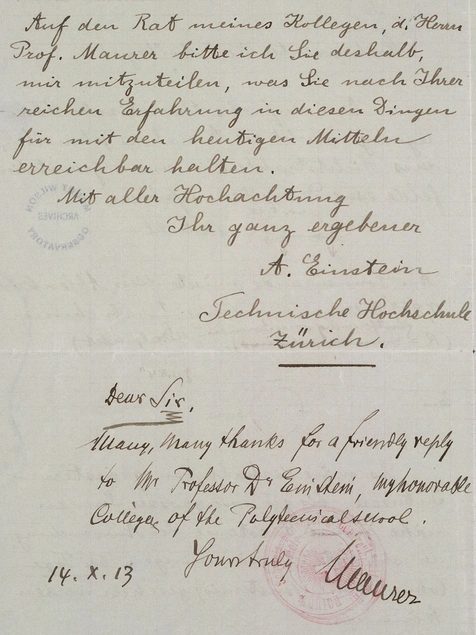 Auf den Rat meines Kollegen, d. Herrn
Prof. Maurer bitte ich Sie deshalb,
mir mitzuteilen, was Sie nach Ihrer
reichen Erfahrung in diesen Dingen
für mit den heutigen Mitteln
erreichbar halten.
Mit aller Hochachtung
Ihr ganz ergebener
A. Einstein
Technische Hochschule
Zürich.
Dear Sir,
Many, many thanks for a friendly reply
to Mr Professor Dr Einstein, my honorable
College of the Polytecnicalscool.
Yours truly
14. X. 13
Maurer